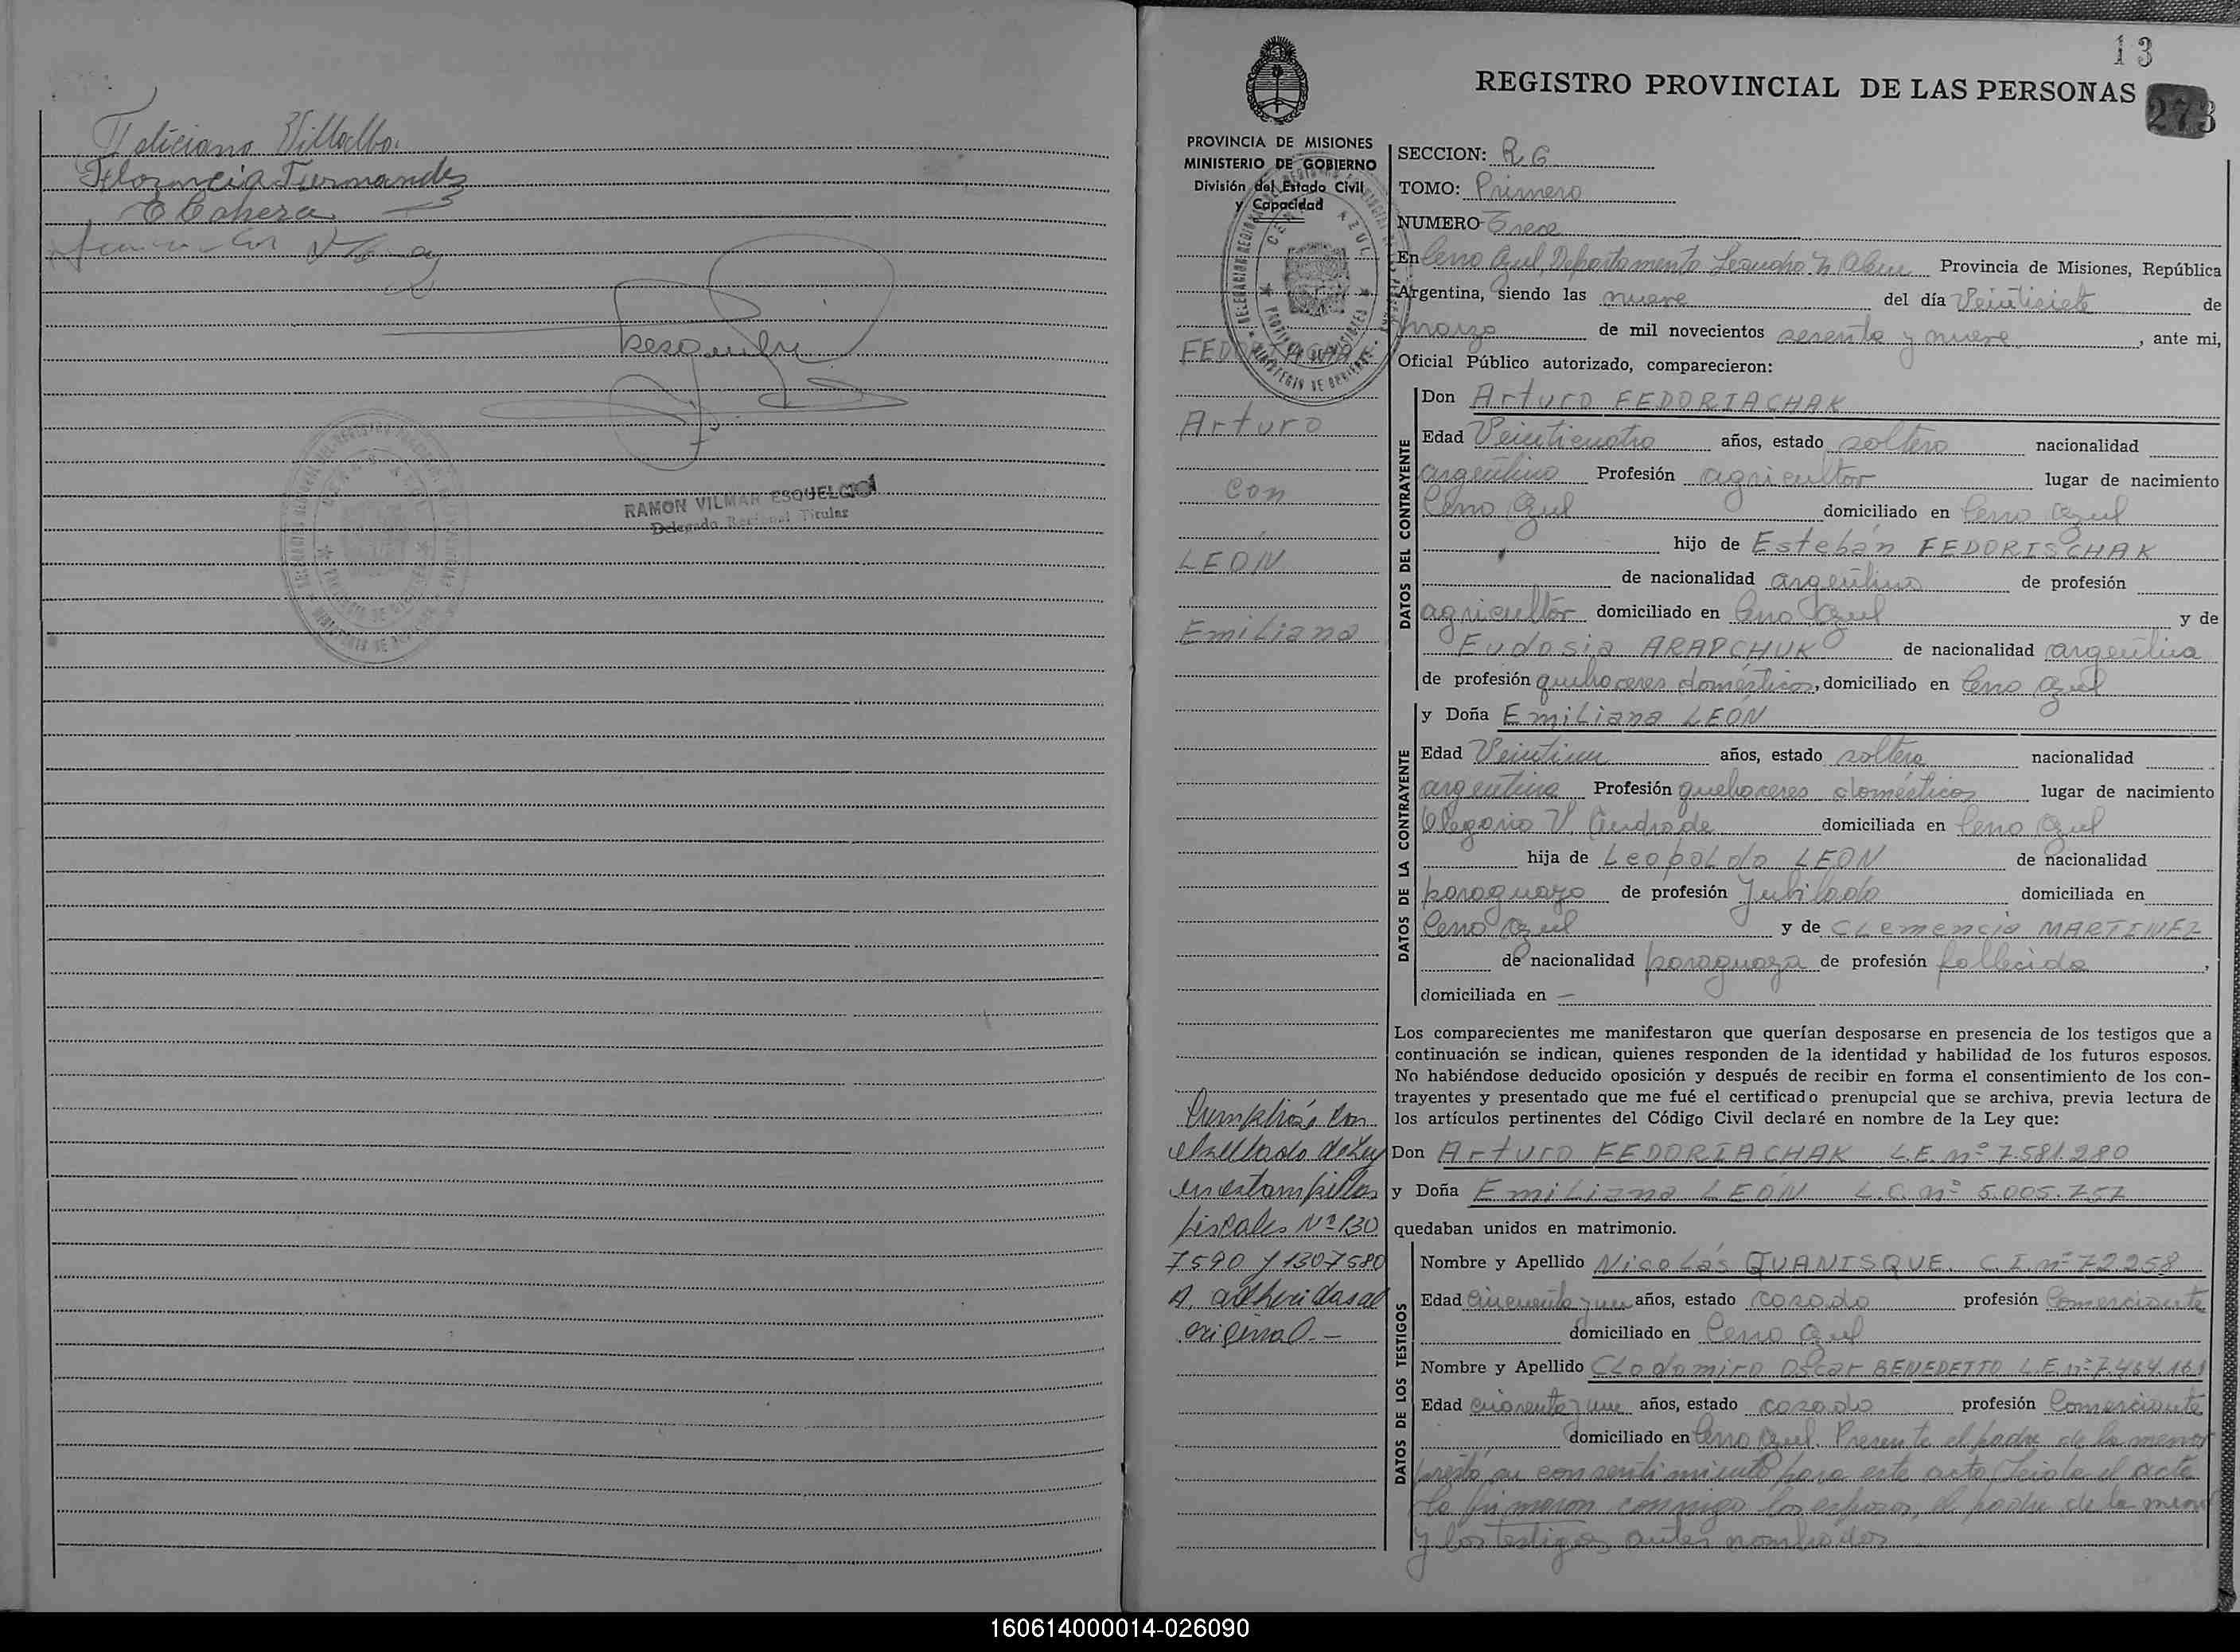 Feliciano Villalba
Florencia Fernandez
E Cabrera
RAMON VILMAR ESQUEL
Delegado Regional Titular
13
REGISTRO PROVINCIAL DE LAS PERSONAS
273
PROVINCIA DE MISIONES
MINISTERIO DE GOBIERNO
División del Estado Civil
y Capacidad
SECCION: R.G.
TOMO: Primero
NUMERO Trece
En Cerro Azul, Departamento Leandro N. Alem Provincia de Misiones, República
Argentina, siendo las nueve del día Veintisiete de
marzo de mil novecientos sesenta y nueve, ante mi,
Oficial Público autorizado, comparecieron:
FEDORIACHAK
Arturo
con
LEON
Emiliana
DATOS DEL CONTRAYENTE
Don Arturo FEDORIACHAK
Edad Veinticuatro años, estado soltero nacionalidad
argentino Profesión agricultor lugar de nacimiento
Cerro Azul domiciliado en Cerro Azul
hijo de Esteban FEDORISCHAK
de nacionalidad argentino de profesión
agricultor domiciliado en Cerro Azul y de
Eudosia ARAPCHUK de nacionalidad argentina
de profesión quehaceres domésticos, domiciliado en Cerro Azul
DATOS DE LA CONTRAYENTE
y Doña Emiliana LEÓN
Edad Veintiun años, estado soltera nacionalidad
argentina Profesión quehaceres domésticos lugar de nacimiento
Olegario V. Andrade domiciliada en Cerro Azul
hija de Leopoldo LEON de nacionalidad
paraguayo de profesión Jubilado domiciliada en
Cerro Azul y de CLemencia MARTINEZ
de nacionalidad paraguaya de profesión fallecida,
domiciliada en —
Los comparecientes me manifestaron que querían desposarse en presencia de los testigos que a
continuación se indican, quienes responden de la identidad y habilidad de los futuros esposos.
No habiéndose deducido oposición y después de recibir en forma el consentimiento de los con-
trayentes y presentado que me fué el certificado prenupcial que se archiva, previa lectura de
los artículos pertinentes del Código Civil declaré en nombre de la Ley que:
Don Arturo FEDORIACHAK L.E. nº 7.581.280
y Doña Emiliana LEÓN L.C. nº 5.005.757
quedaban unidos en matrimonio.
Cumplióse con
el sellado de Ley
en estampillas
fiscales Nº 130
7590 y 1307580
A. adheridas al
original.-
DATOS DE LOS TESTIGOS
Nombre y Apellido Nicolás QUANISQUE. C.I. nº 72.258
Edad cincuenta y un años, estado casado profesión Comerciante
domiciliado en Cerro Azul
Nombre y Apellido CLodomiro Oscar BENEDETTO L.E. nº 7.464.161
Edad cuarenta y un años, estado casado profesión Comerciante
domiciliado en Cerro Azul. Presente el padre de la menor
prestó su consentimiento para este acto. Leida el acta
la firmaron conmigo los esposos, el padre de la menor
y los testigos antes nombrados
160614000014-026090